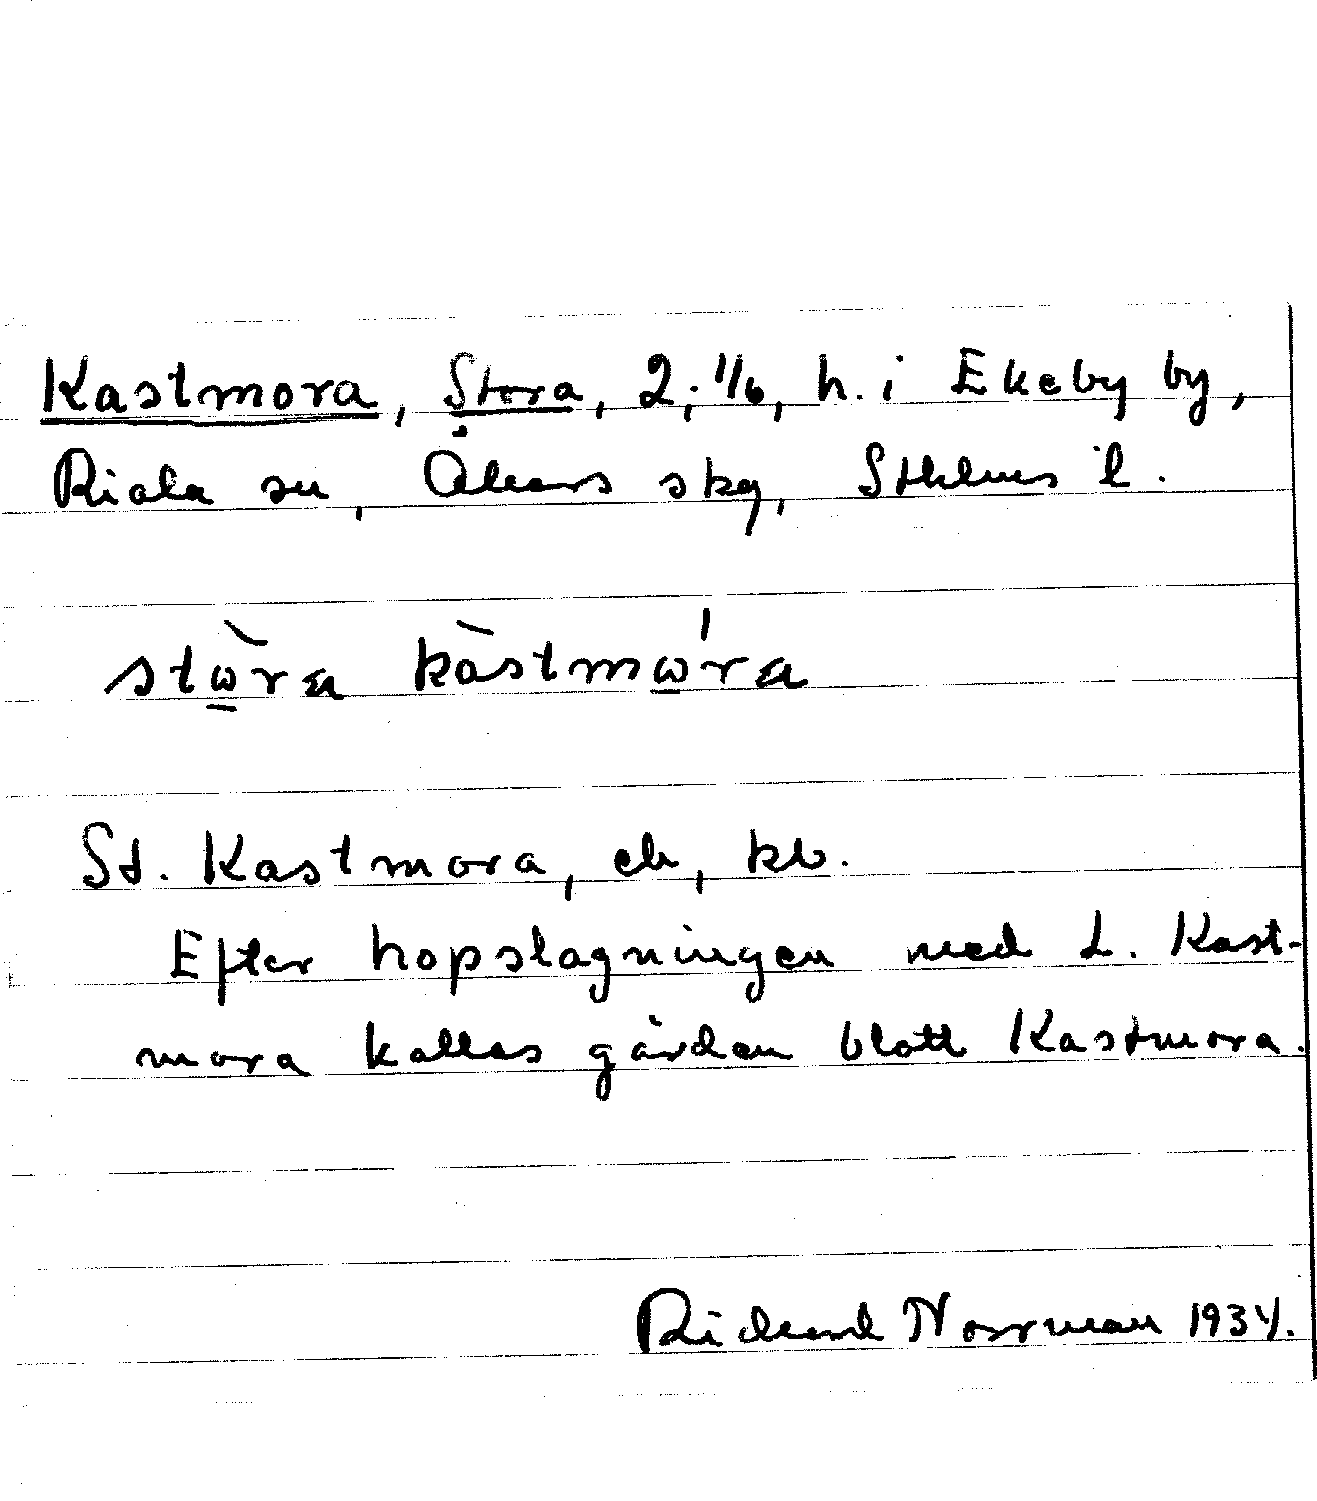 Kastmora, Stora, 2; 1/6, h. i Ekeby by,
Riala sn, Åkers skg, Sthlms l.
stὼ̲ra kàstmώ̲ra
St. Kastmora, ek, kb.
Efter hopslagningen med L. Kast-
mora kallas gården blott Kastmora.
Rickard Norrman 1934.